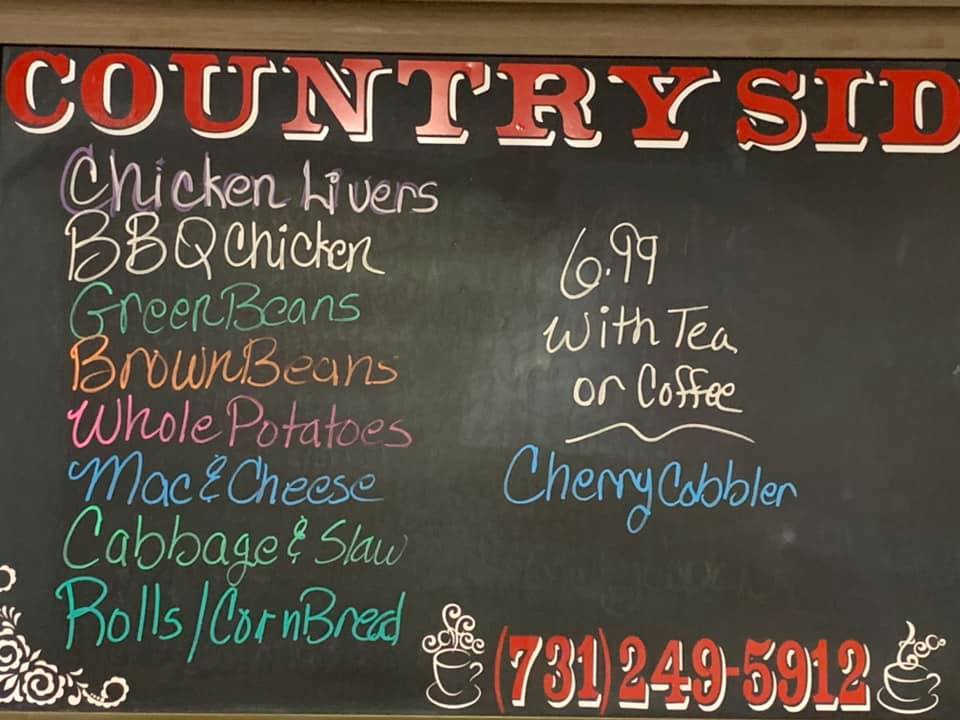 COUNTRY SID
Chicken Livers
BBQ Chicken
Green Beans
Brown Beans
Whole Potatoes
Mac & Cheese
Cabbage & Slaw
Rolls/Corn Bread
6.99
With Tea
or Coffee
Cherry Cobbler
coffee
(731) 249-5912
tea